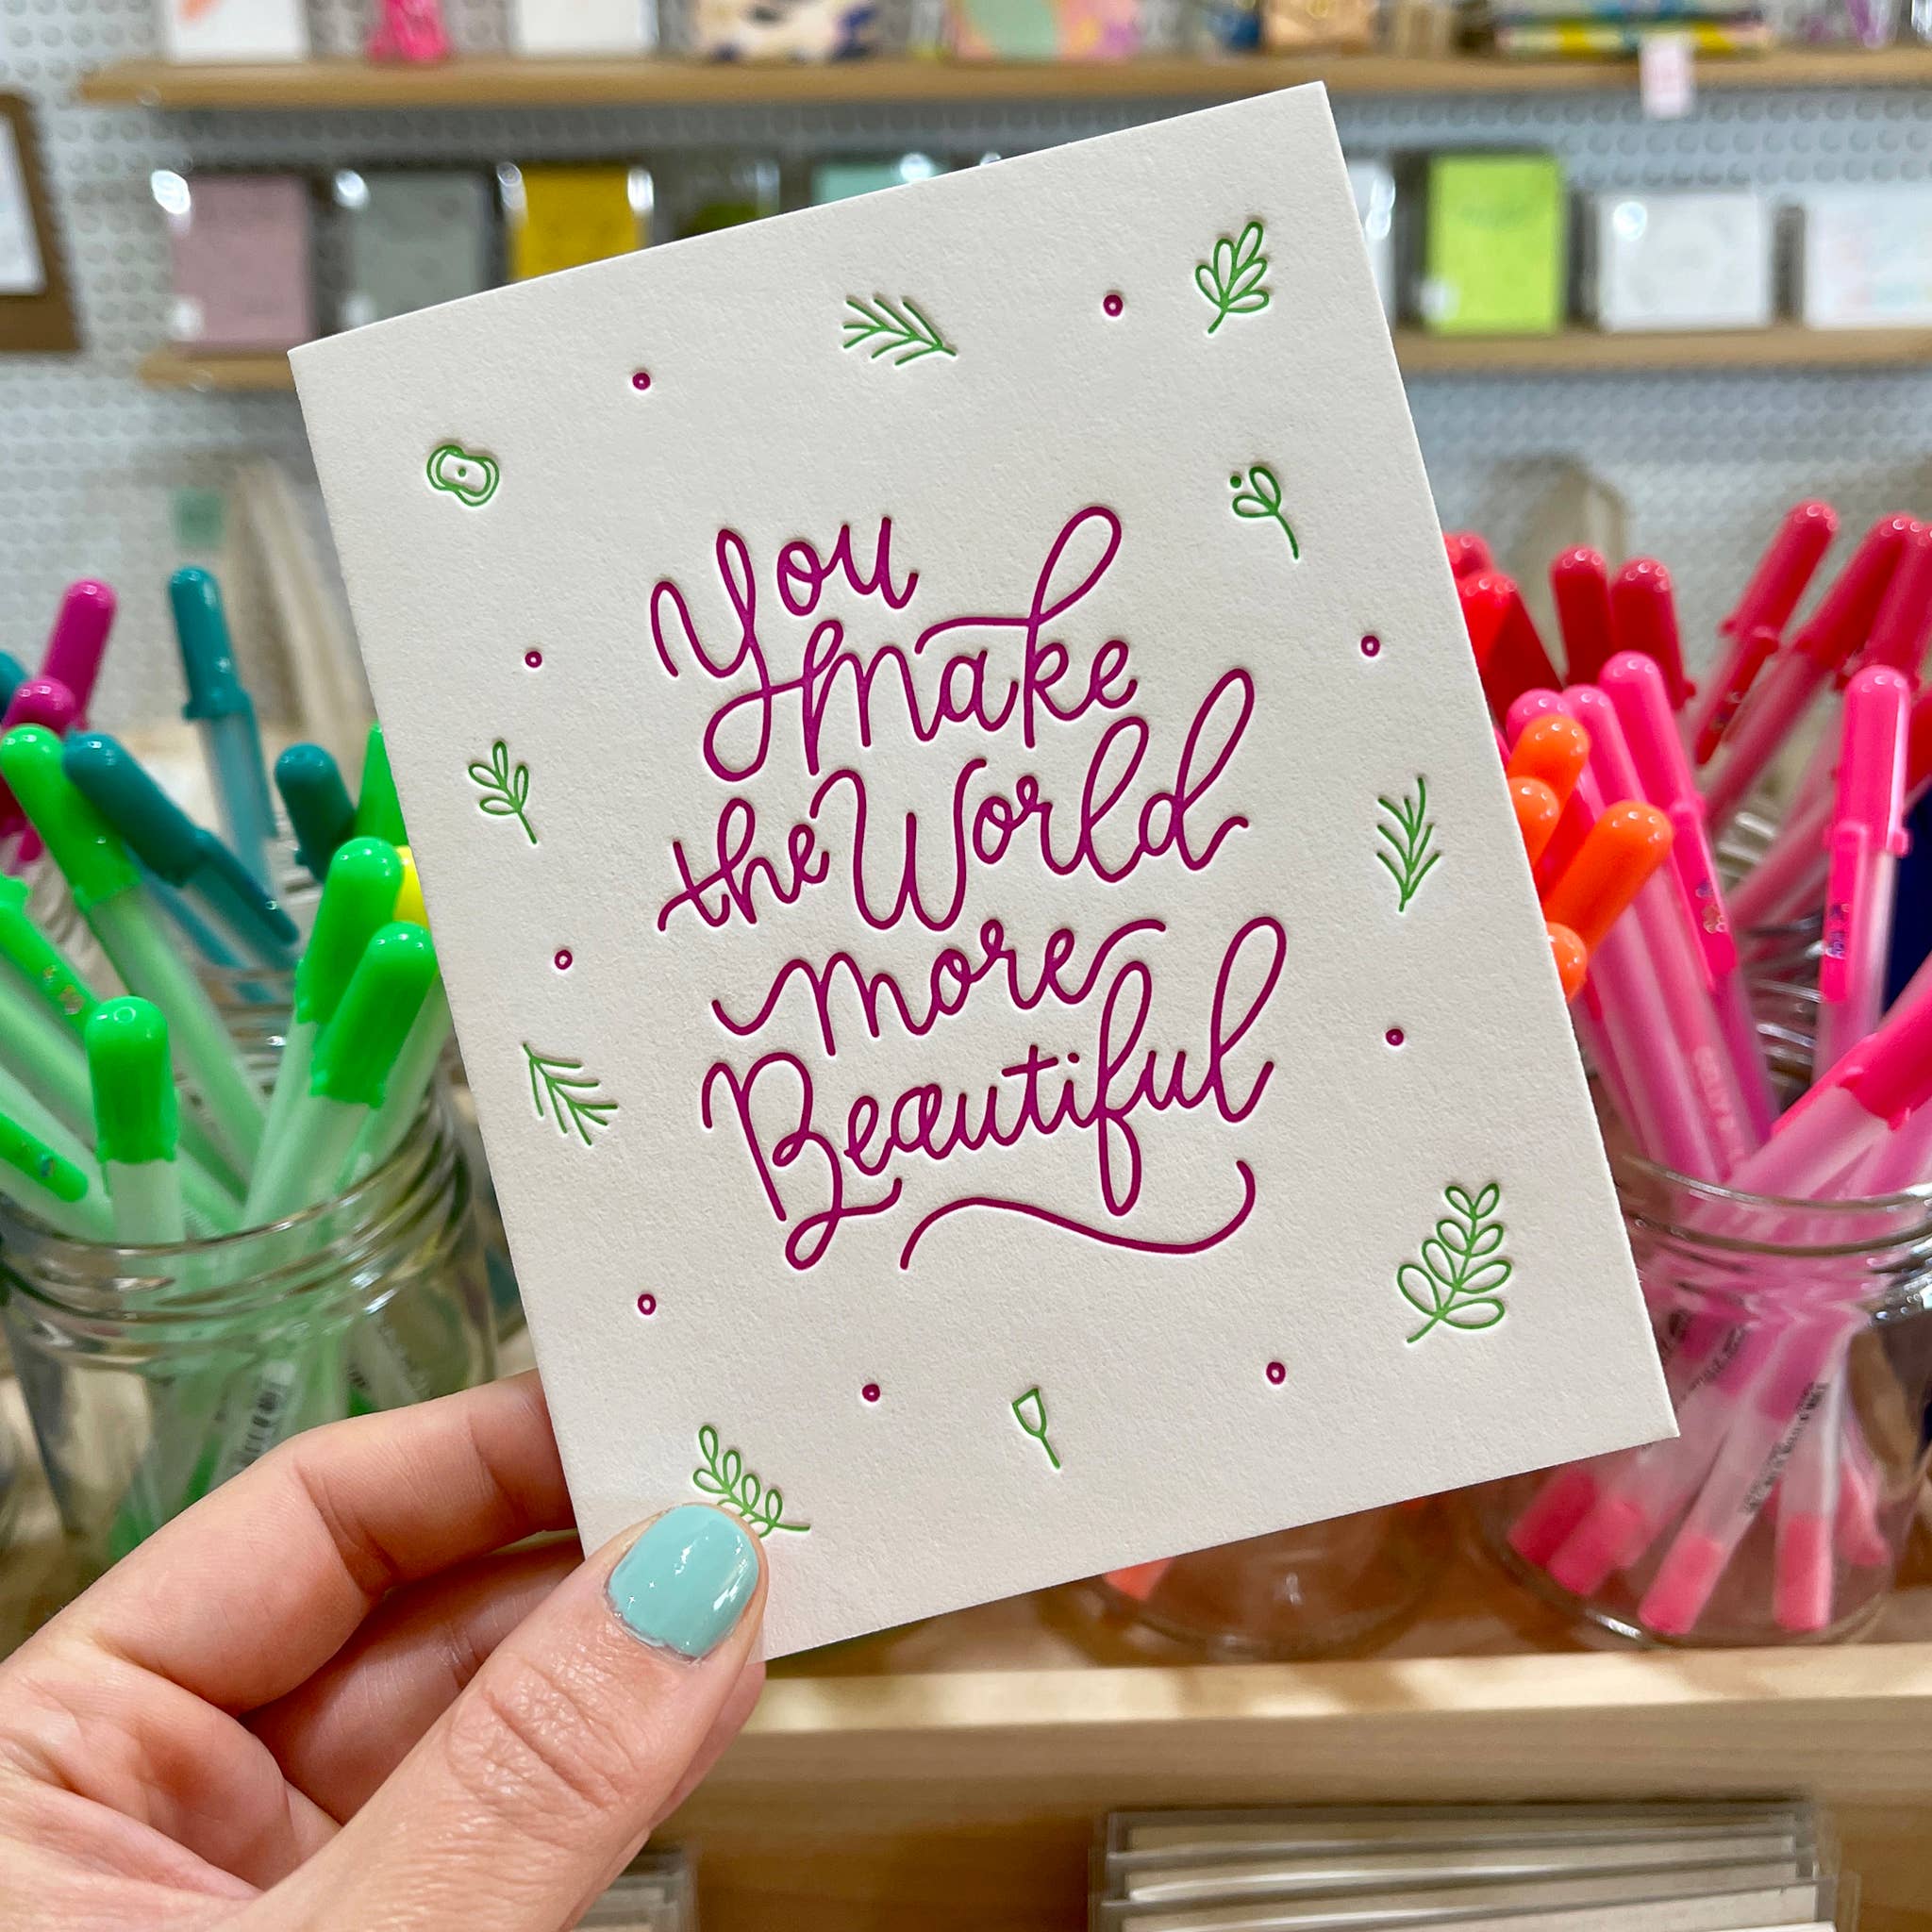 You
Make
the World
more
Beautiful